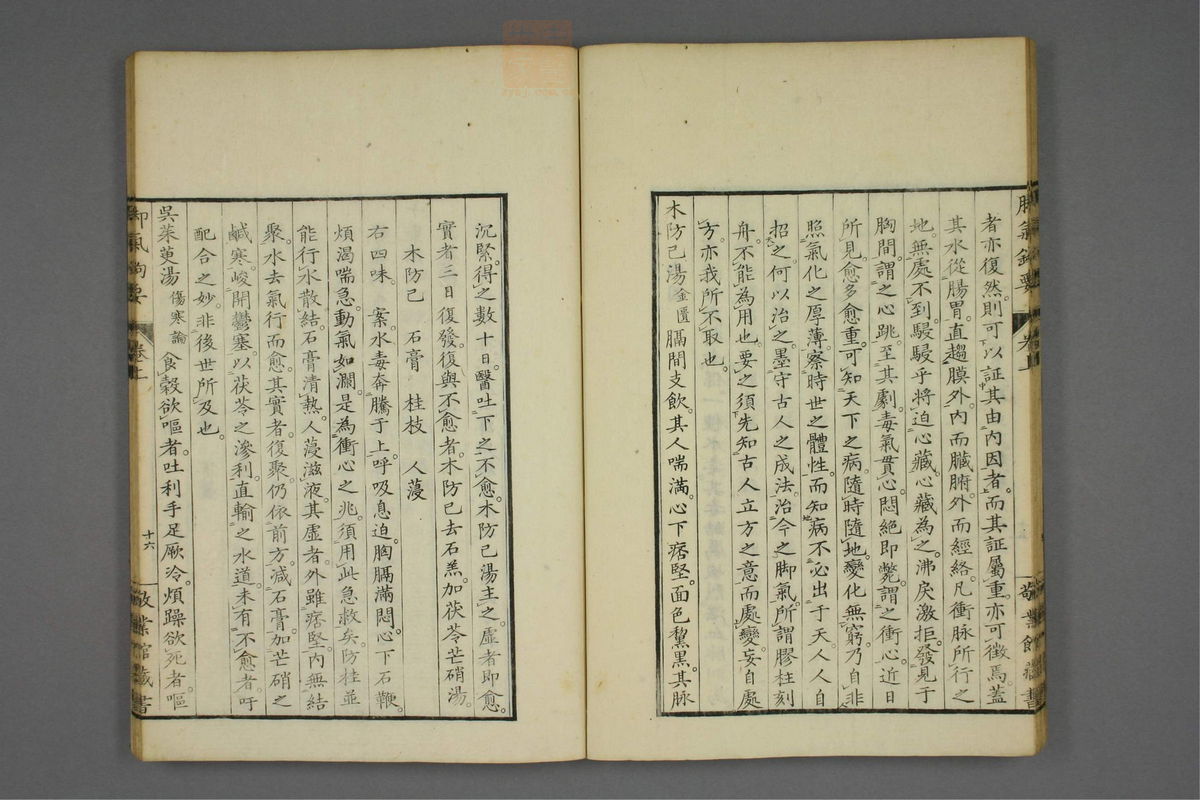 者亦復然。則可以証其由內因者。而其証屬重。亦可徵焉。蓋
其水從腸胃。直趨膜外。內而臟腑。外而經絡。凡衝脉所行之
地。無處不到。駸駸乎將迫心藏。心藏為之沸戾激拒。發見于
胸間。謂之心跳。至其劇。毒氣貫心。悶絕即斃。謂之衝心。近日
所見。愈多愈重。可知天下之病。隨時隨地。變化無窮。乃自非
照氣化之厚薄。察時世之體性。而知病不必出于天人人自
招之。何以治之。墨守古人之成法。治今之脚氣。所謂膠柱刻
舟。不能為用也。要之須先知古人立方之意而處變。妄自處
方。亦我所不取也。
木防己湯 金匱 膈間支飲。其人喘滿。心下痞堅。面色黧黑。其脉
沉緊。得之數十日。醫吐下之不愈。木防己湯主之。虛者即愈。
實者三日復發。復與不愈者。木防已去石羔。加茯苓芒硝湯。
木防己 石膏 桂枝 人蓡
右四味。 案。水毒奔騰于上。呼吸息迫。胸膈滿悶。心下石鞕。
煩渴喘急。動氣如瀾。是為衝心之兆。須用此急救矣。防桂並
能行水散結。石膏清熱。人蓡滋液。其虛者。外雖痞堅。內無結
聚。水去氣行而愈。其實者復聚。仍依前方。減石膏。加芒硝之
鹹寒。峻開鬱塞。以茯苓之滲利。直輸之水道。未有不愈者。吁
配合之妙。非後世所及也。
吳茱萸湯 傷寒論 食穀欲嘔者。吐利手足厥冷。煩躁欲死者。嘔
卷上
十六